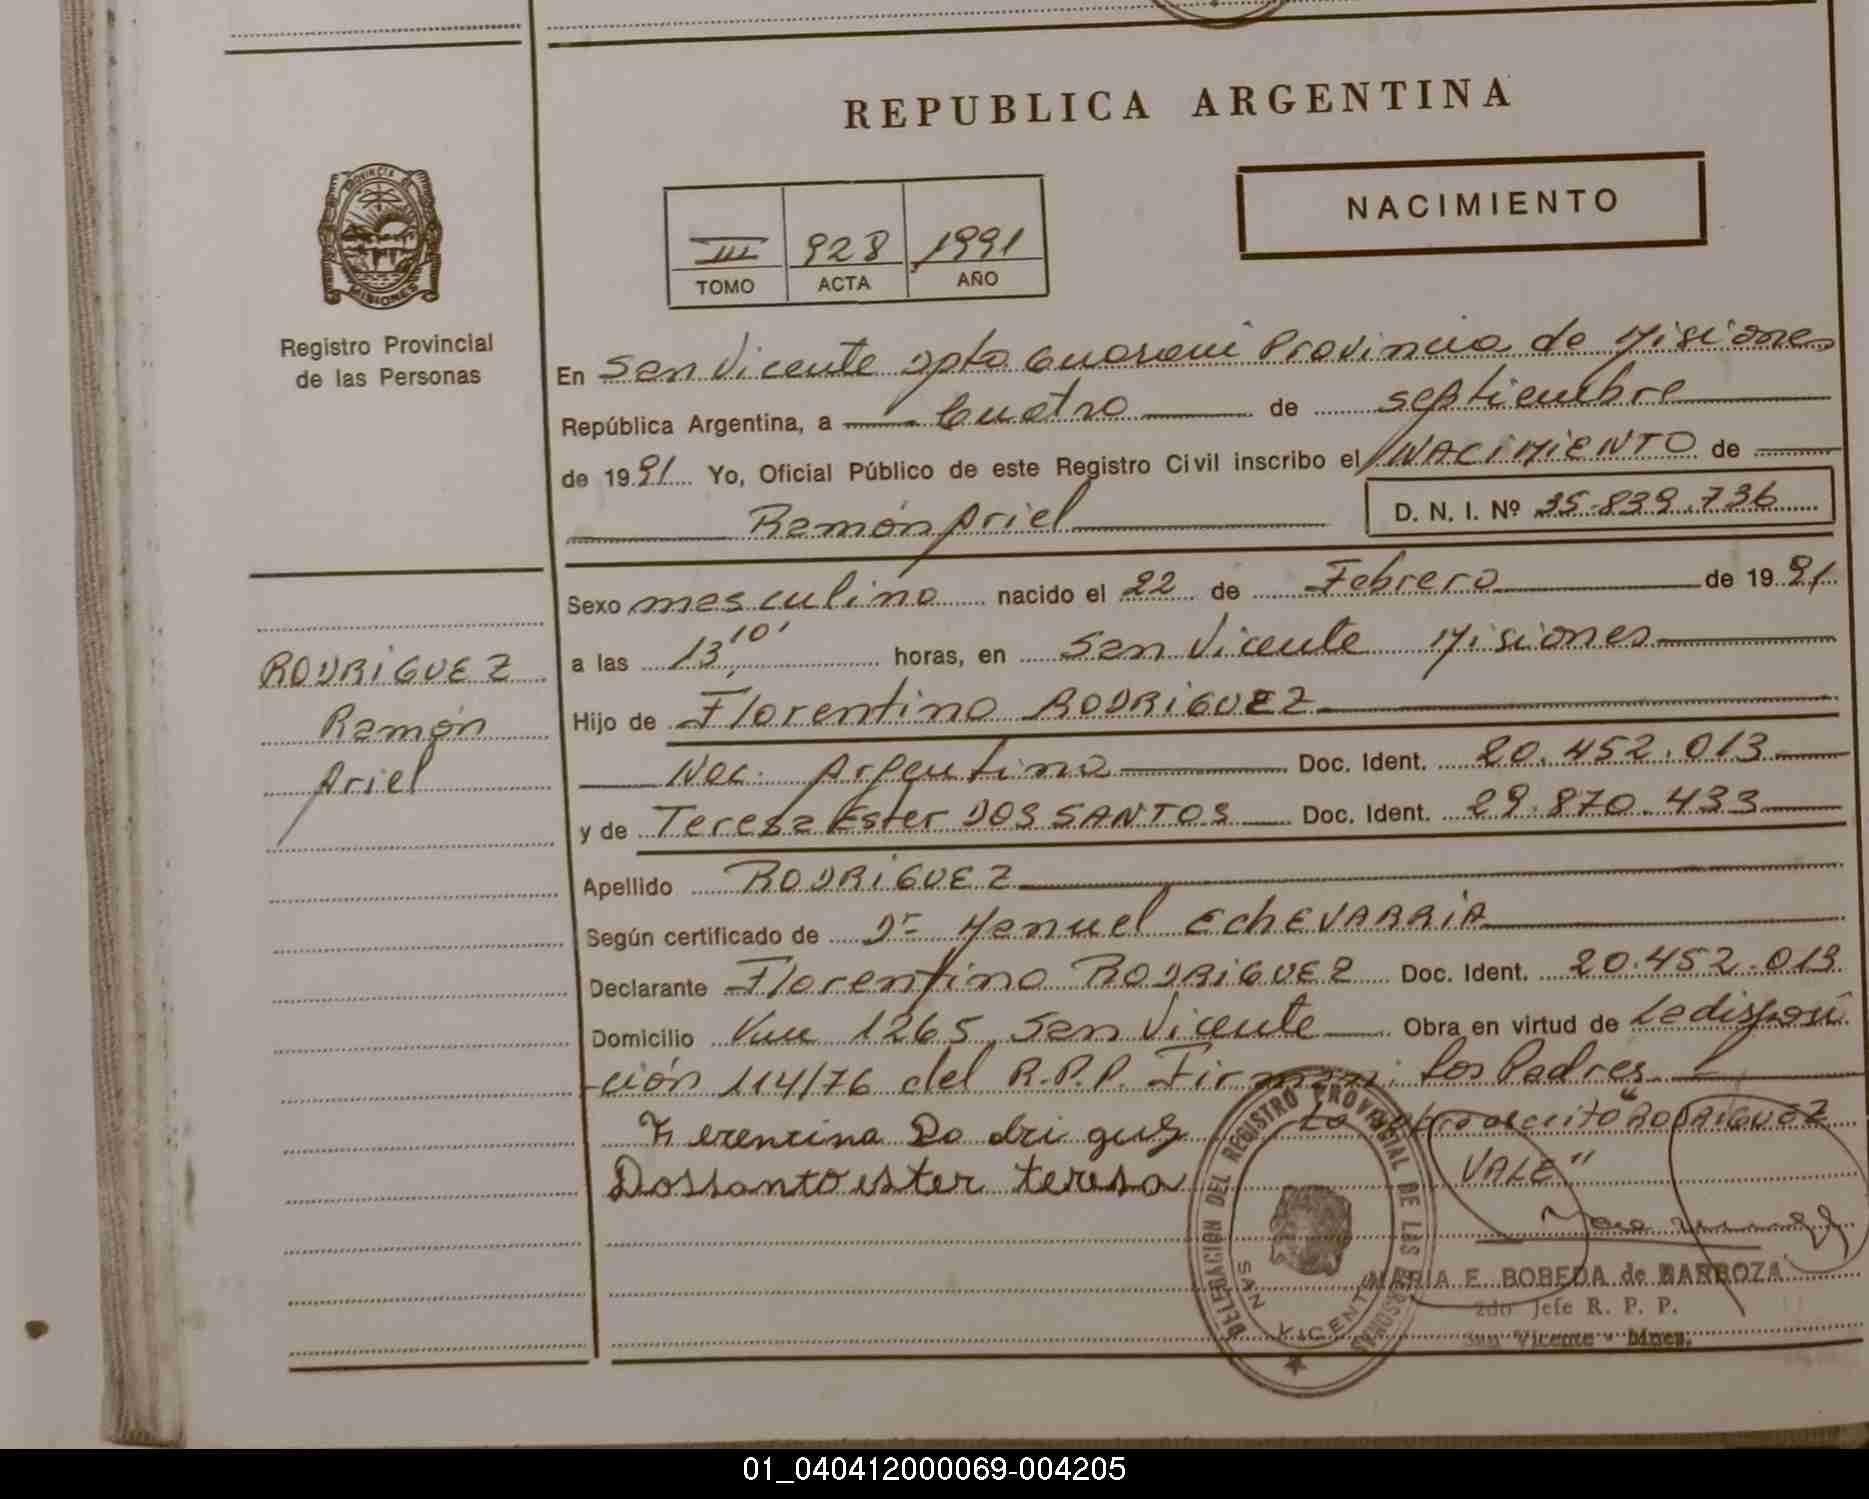 REPUBLICA ARGENTINA
PROVINCIA DE
MISIONES
Registro Provincial
de las Personas
NACIMIENTO
III 928 1991
TOMO ACTA AÑO
En San Vicente Dpto Guarani Provincia de Misiones
República Argentina, a Cuatro de septiembre
de 1991 Yo, Oficial Público de este Registro Civil inscribo el NACIMIENTO de
Ramón Ariel D. N. I. Nº 35.839.736
Sexo masculino nacido el 22 de Febrero de 1991
a las 13,10' horas, en San Vicente Misiones
Hijo de Florentino RODRIGUEZ
Nac. Argentina Doc. Ident. 20.452.013
y de Teresa Ester DOS SANTOS Doc. Ident. 29.870.433
Apellido RODRIGUEZ
Según certificado de Dr Manuel EchEVARRIA
Declarante Florentino RODRIGUEZ Doc. Ident. 20.452.013
Domicilio 1265 San Vicente Obra en virtud de La disposi
ción 114/76 del R.P.P. Firman: Los Padres
RODRIGUEZ
VALE"
Dossanto ester teresa
RODRIGUEZ
Ramón
Ariel
DELEGACION DEL REGISTRO PROVINCIAL DE LAS PERSONAS
SAN VICENTE
MARIA E. BOBEDA de BARBOZA
2do Jefe R. P. P.
San Vicente - Mnes.
01_040412000069-004205